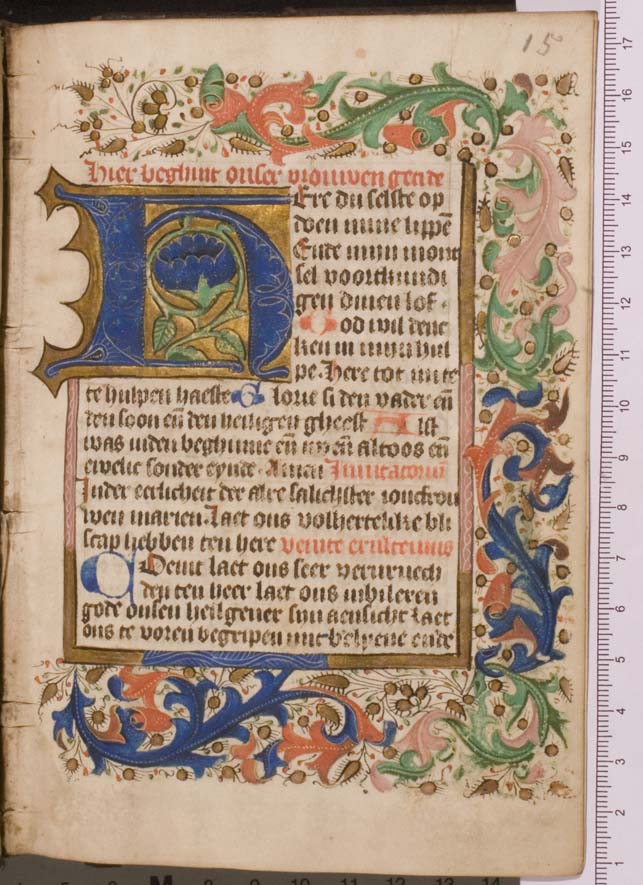 15
Hier beghint onser vrouwen getide
HEre du selste op
doen mine lippē
Ende mijn mont
sel voortkundi
gen dinen lof.
God wil denc
ken in mijn hul
pe. Here tot mi te
te hulpen haeste Glorie si den vader eñ
den soon eñ den heiligen gheest Als ist
was inden beghinne eñ nu eñ altoos eñ
ewelic sonder eynde. Amen Inuitatoriū
Inder eerlicheit der alre salichster ionckvrou
wen marien. Laet ons volhertelike bli
scap hebben ten here venite exultemus
Coemt laet ons seer veruruech
den ten heer laet ons iubileren
gode onsen heilgeuer sijn aensicht laet
ons te voren begripen mit belyene ende
17
16
15
14
13
12
11
10
9
8
7
6
5
4
3
2
1